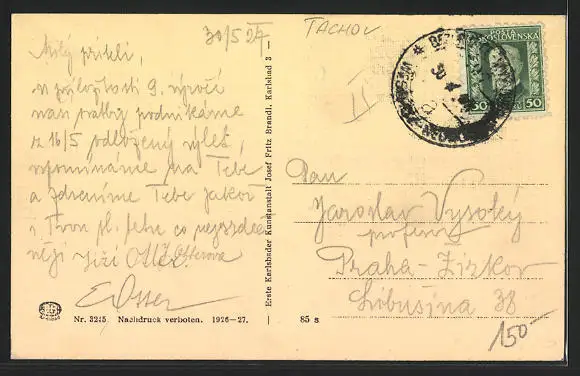 30/5 27
TACHOV
Milý příteli,
u příležitosti 9. výročí
naší svatby podnikáme
z 16/5 odložený výlet,
vzpomínáme na Tebe
a zdravíme Tebe jakož
i Tvou pl. fetu co nejsrdeč
něji Jiří Otter.
Otterova
EOtter
II
POŠTA
ČESKOSLOVENSKÁ
50 50
Pan
Jaroslav Vysoký
profesor
Praha-Žižkov
Libušina 38
150-
Erste Karlsbader Kunstanstalt Josef Fritz Brandl, Karlsbad 3
Nr. 3245 Nachdruck verboten. 1926-27.
85 s